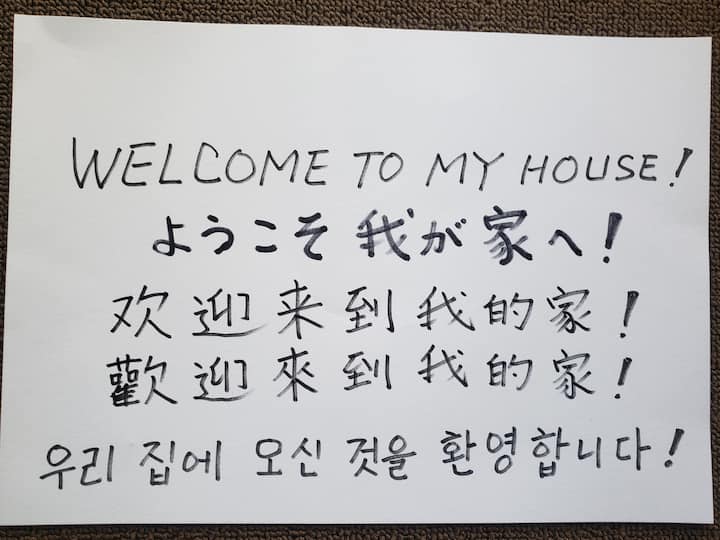 WELCOME TO MY HOUSE!
ようこそ 我が家へ!
欢迎来到我的家!
歡迎來到我的家!
우리 집에 오신 것을 환영합니다!